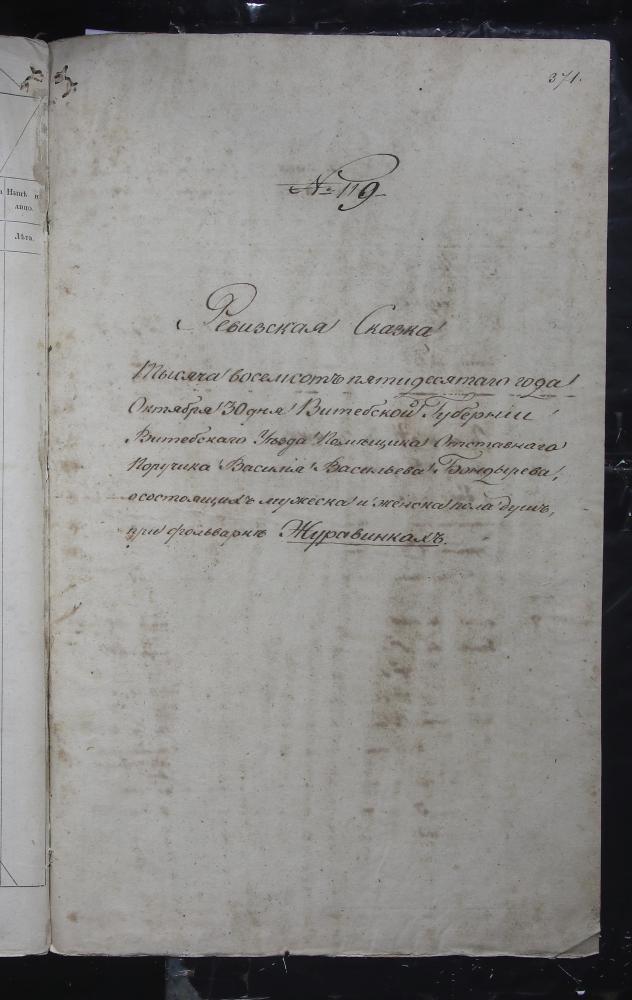 371.
№ 119
Ревизская Сказка
Тысяча восемсотъ пятидесятаго года
Октября 30 дня Витебской Губерніи
Витебскаго Уѣзда Помѣщика Отставнаго
Поручика Василія Васильева Бондырева,
о состоящихъ мужеска и женска пола душъ,
при фольваркѣ Журавинкахъ.
Нынѣ н
лицо.
Лѣта.